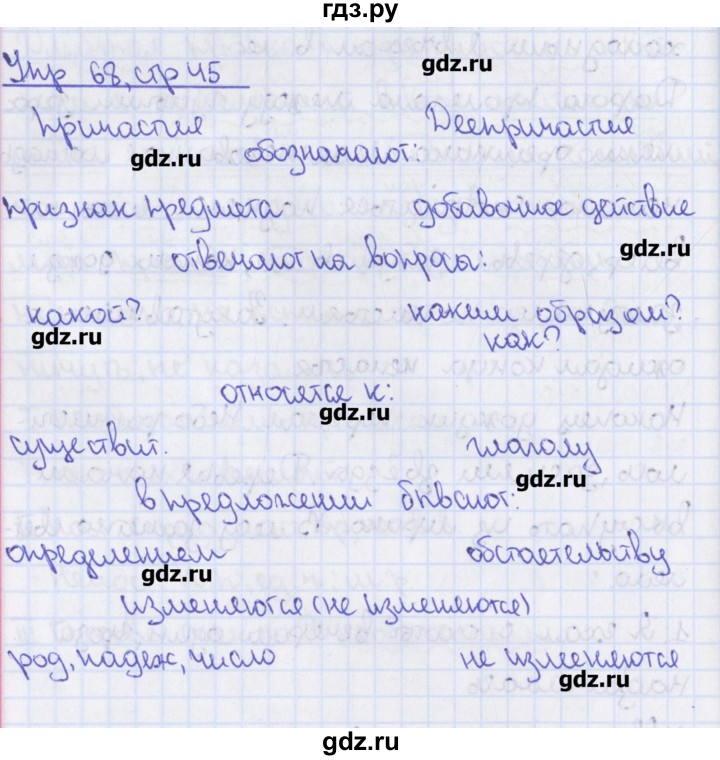 гдз.ру
Упр 68, стр 45
gdz.ru
Причастие Деепричастие
gdz.ru
обозначают:
признак предмета добавочное действие
gdz.ru
отвечают на вопросы:
какой? каким образом?
gdz.ru
как?
относятся к:
gdz.ru
существит. глаголу
gdz.ru
в предложении бывают:
определением обстоетельству
gdz.ru
изменяются (не изменяются)
род, падеж, число не изменяются
gdz.ru
gdz.ru